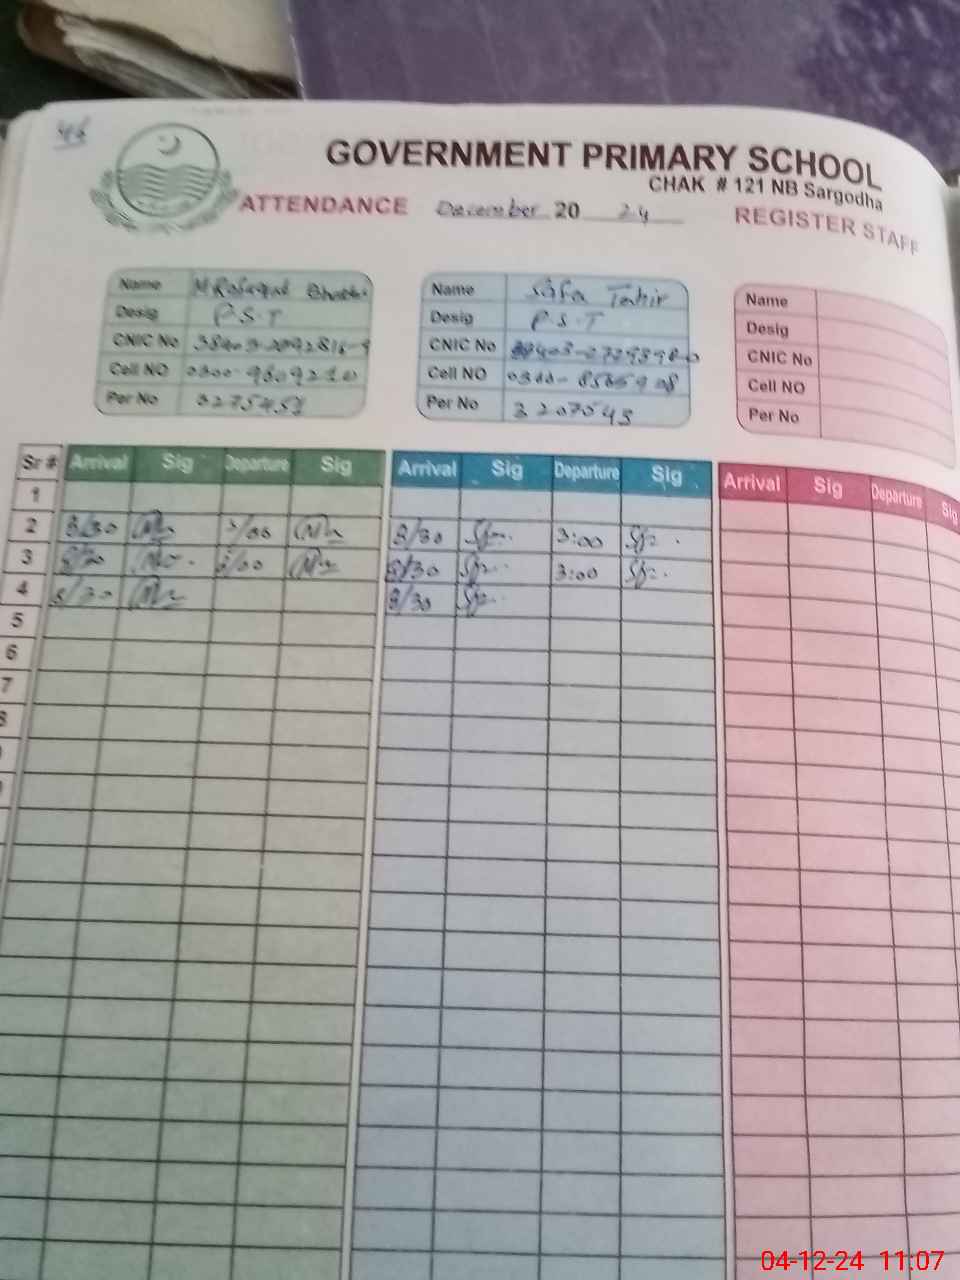 46
GOVERNMENT PRIMARY SCHOOL
CHAK # 121 NB Sargodha
ATTENDANCE December 20 24 REGISTER STAFF
Name
Desig P.S.T
CNIC No
Cell NO 0300-9609210
Per No 3275451
Name Safa Tahir
Desig P.S.T
CNIC No
Cell NO
Per No 3207543
Name
Desig
CNIC No
Cell NO
Per No
Sr # Arrival Sig Departure Sig Arrival Sig Departure Sig Arrival Sig Departure Sig
1
2 8/30 8/30 3:00
3 8/30 3:00
4 8/30 8/30
5
6
7
8
04-12-24 11:07